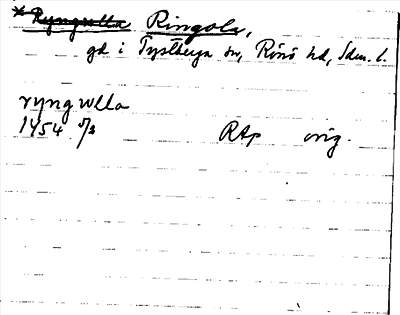 * Ryngwlla Ringola,
gd i Tystberga sn, Rönö hd, Sdm. l.
ryngwlla
1454 5/2 RAp orig.